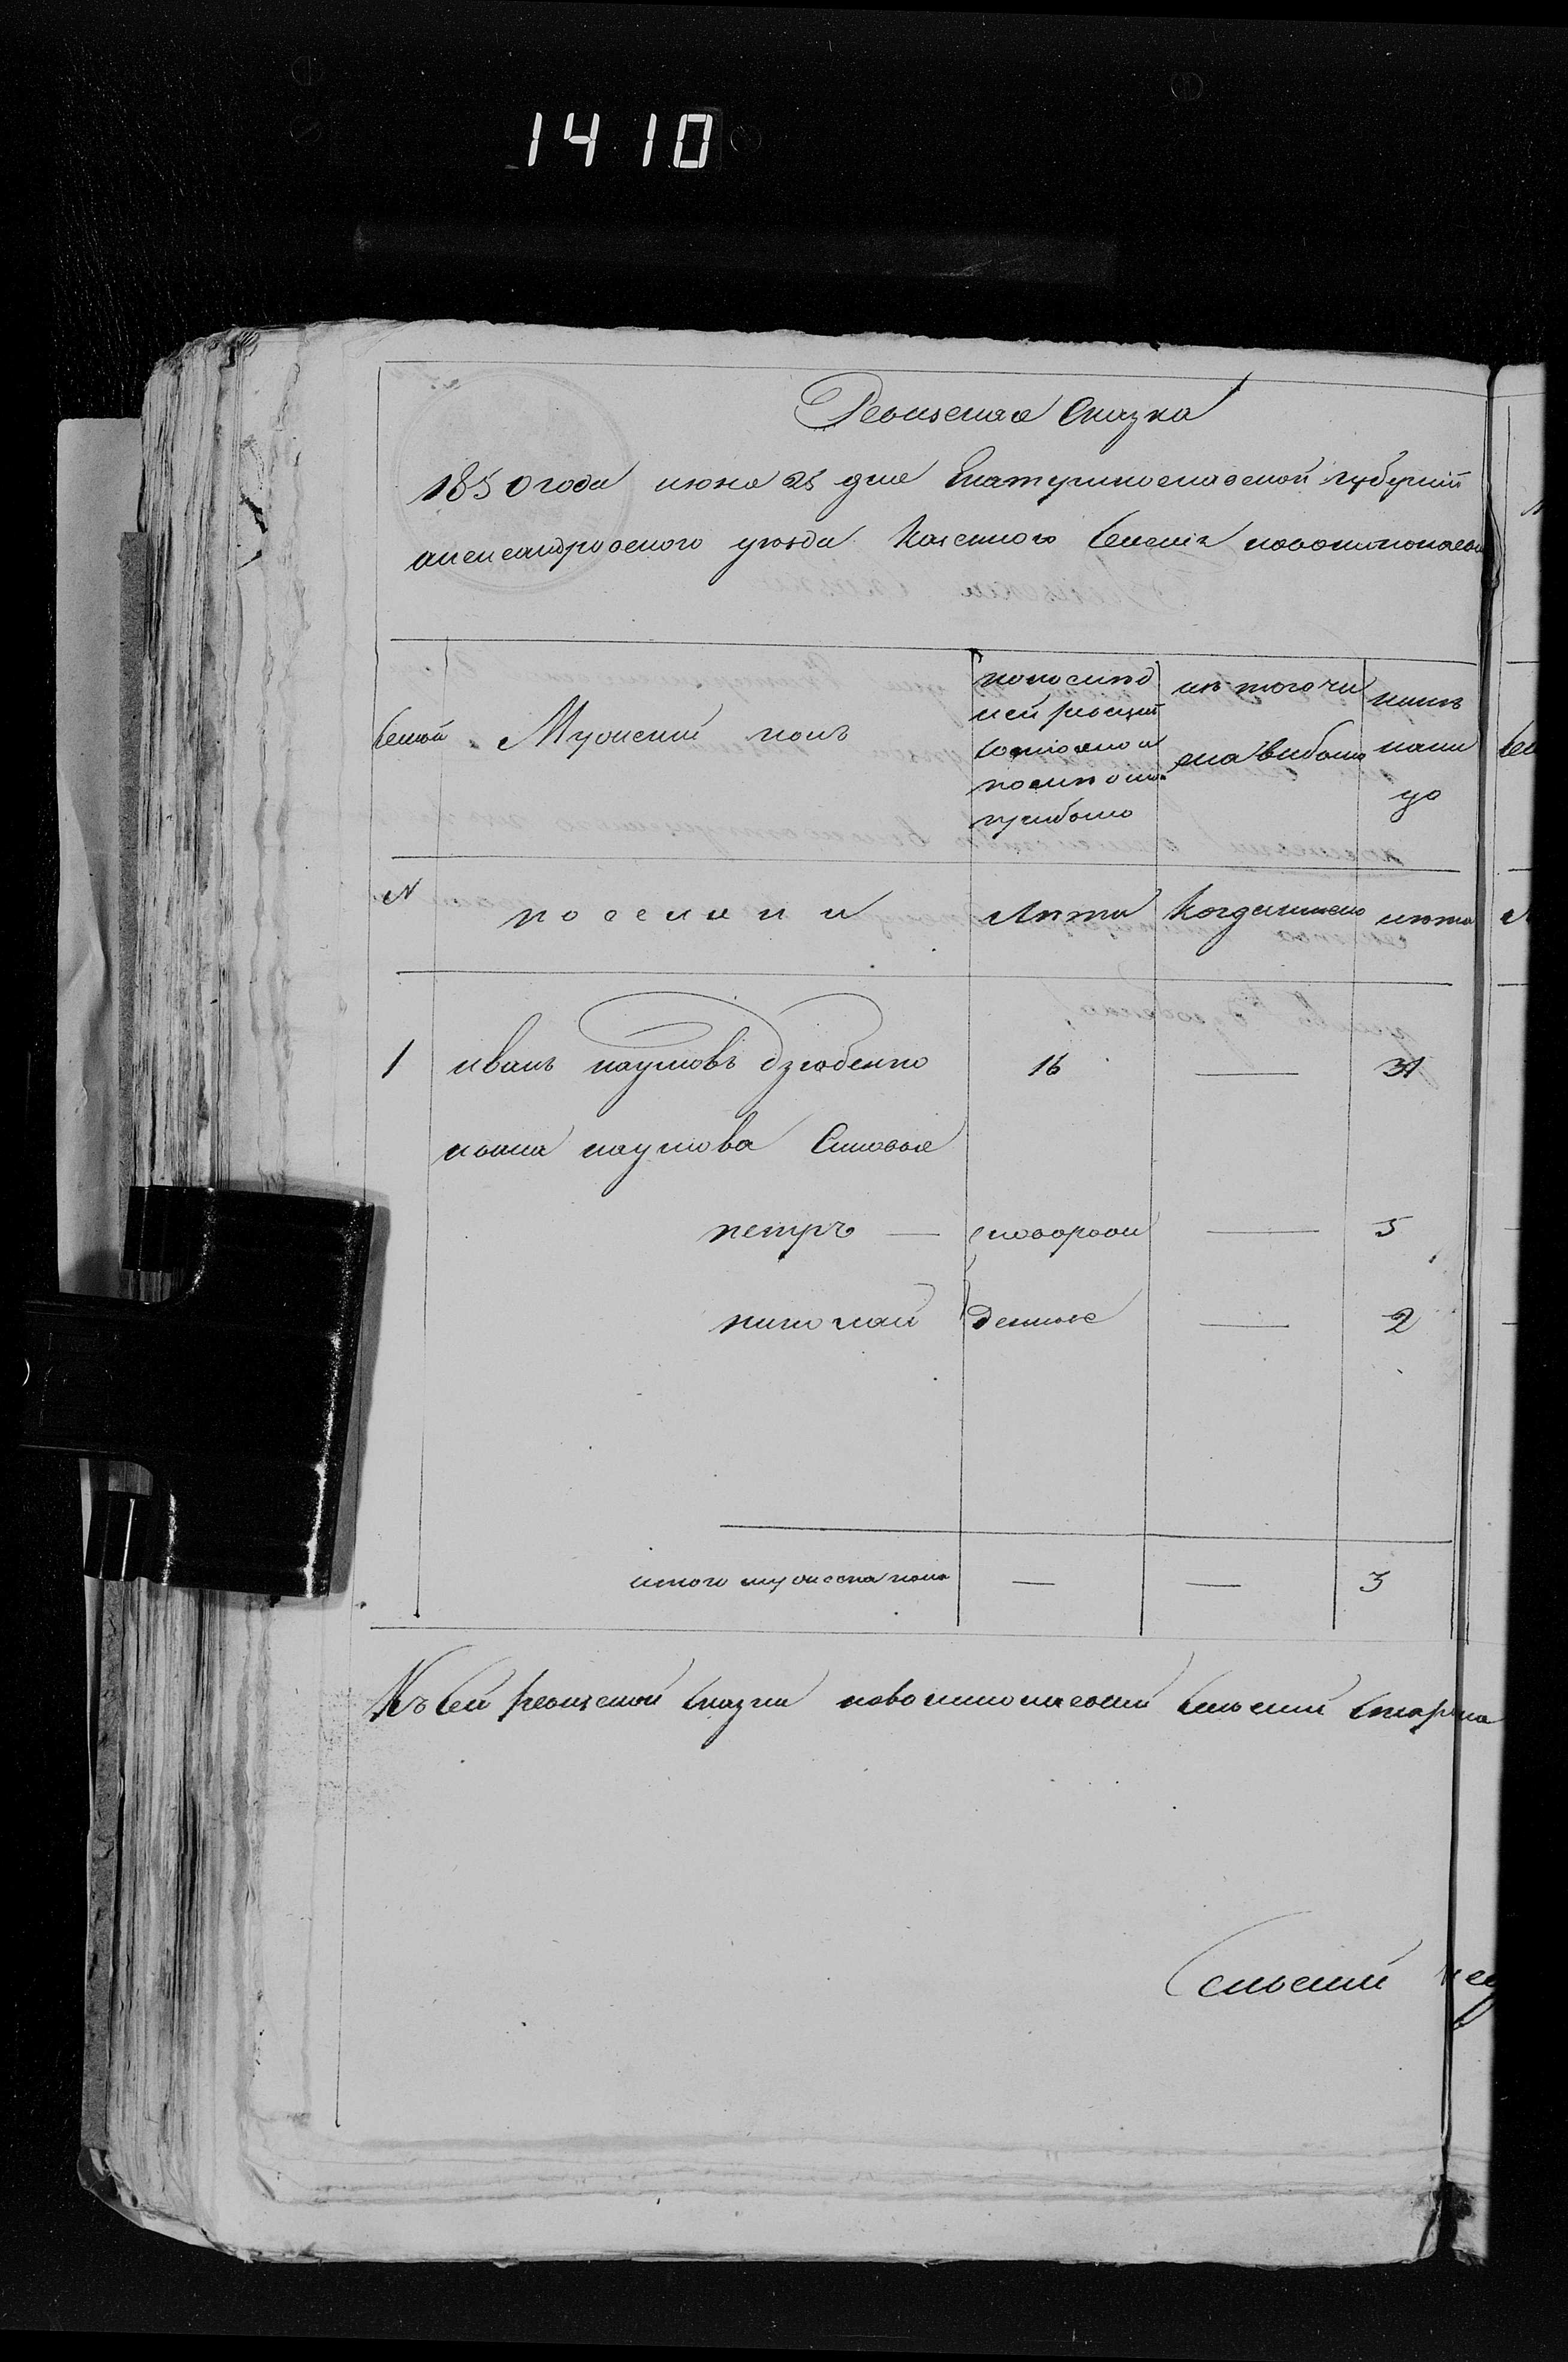 1410
Ревизская Сказка
1850 года июня 25 дня Екатеринославской губерний
александровского уезда Казенного Селенія новониколаевк
Семей
Мужеский полъ
по послед
ней ревизии
состояло и
после оной
прибыло
изъ того чи
сла выбыло
ныне
нали
цо
N
поселяни
Лета
Когда именно
лета
1 иванъ наумовъ дзюбенко 16 — 31
ивана наумова Сыновья
петръ — новорож 5
николай денные — 2
итого мужеска пола — — 3
Къ сей ревизской сказки новониколаевский сельский старшина
Сельский